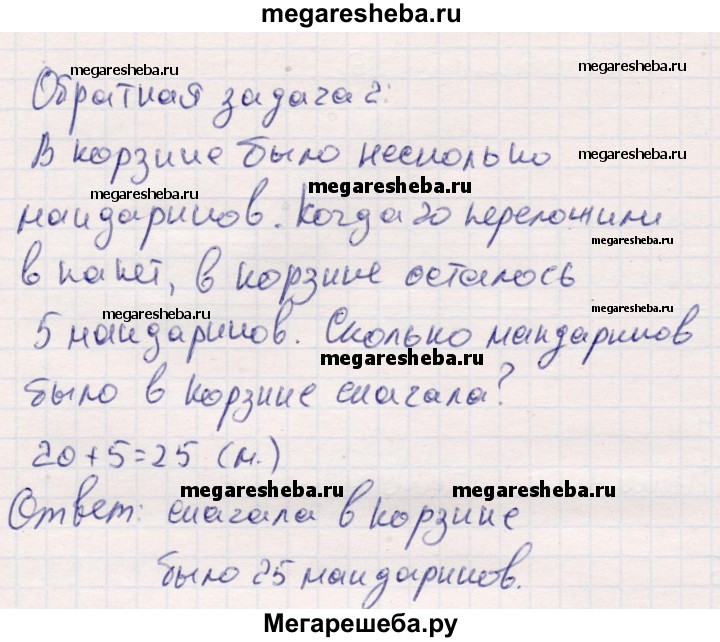 megaresheba.ru
megaresheba.ru megaresheba.ru
Обратная задача 2:
В корзине было несколько megaresheba.ru
megaresheba.ru megaresheba.ru
мандаринов. Когда 20 переложили
megaresheba.ru
в пакет, в корзине осталось
megaresheba.ru megaresheba.ru
5 мандаринов. Сколько мандаринов
megaresheba.ru
было в корзине сначала?
20+5=25 (м.)
megaresheba.ru megaresheba.ru
Ответ: сначала в корзине
было 25 мандаринов.
Мегарешеба.ру